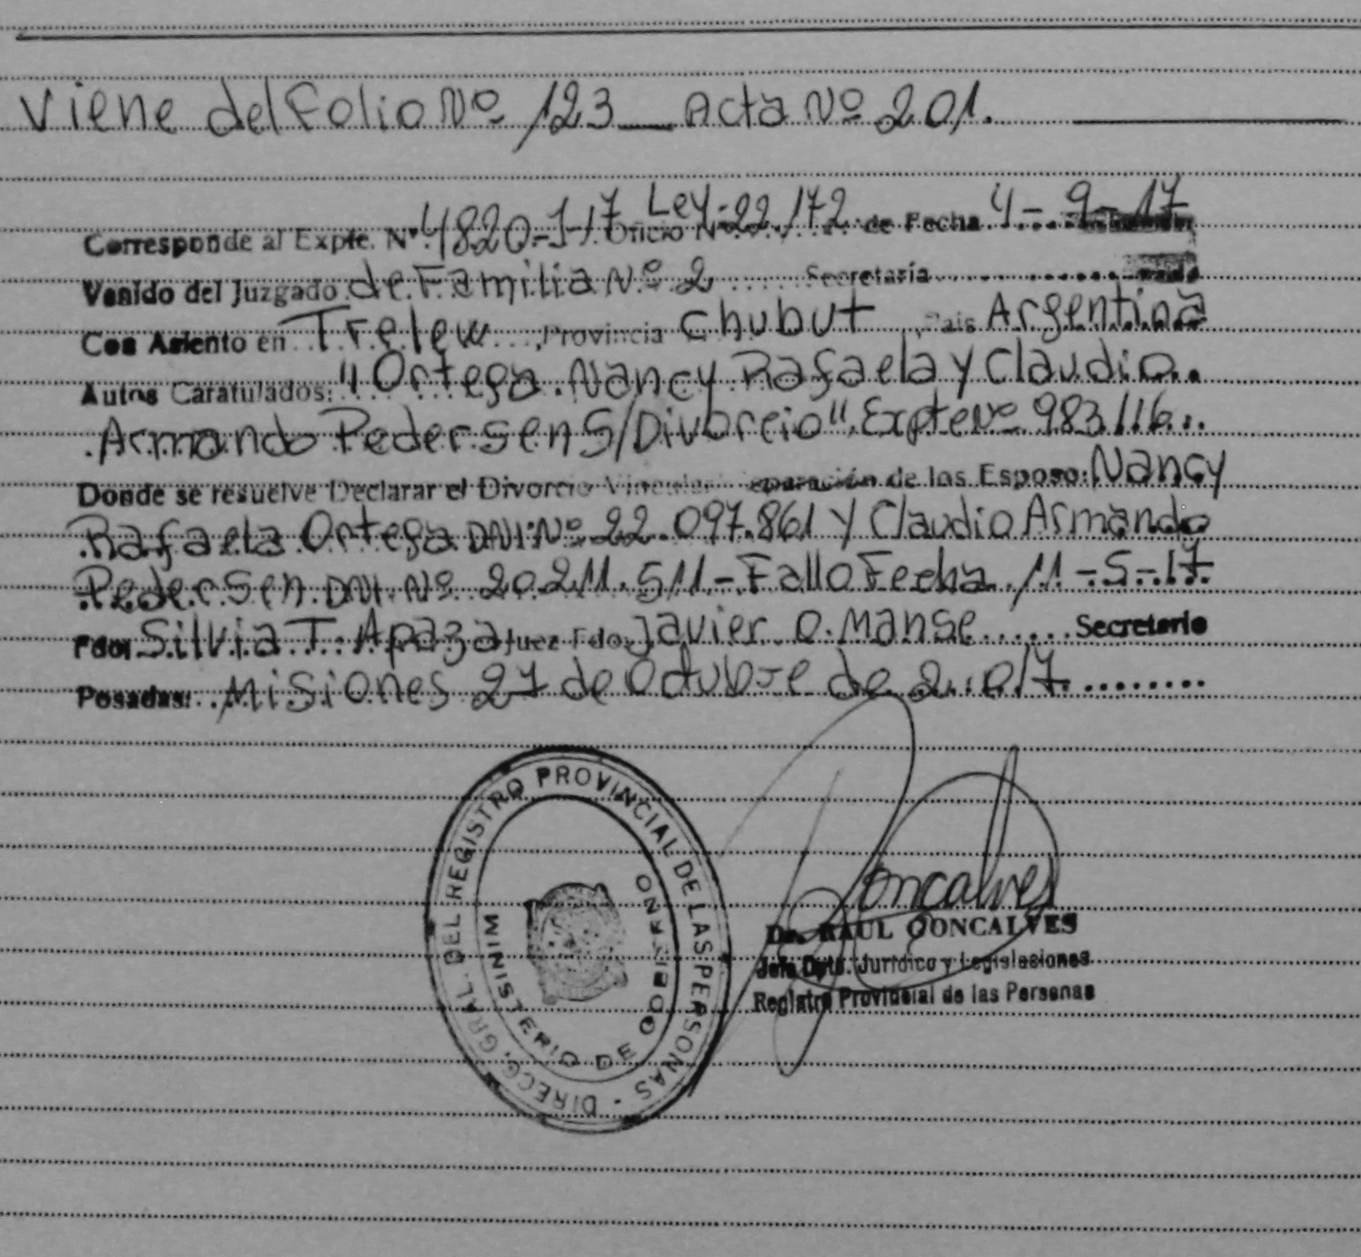 Viene del Folio Nº 123 __ Acta Nº 201.
Corresponde al Expte. Nº 4820-J-17 Oficio Nº Ley-22172 de Fecha 4-9-17
Venido del Juzgado de Familia Nº 2 Secretaría
Con Asiento en Trelew Provincia Chubut País Argentina
Autos Caratulados: "Ortega Nancy Rafaela y Claudio
Armando Pedersen S/Divorcio" Expte Nº 983/16
Donde se resuelve Declarar el Divorcio Vincular separación de los Esposo: Nancy
Rafaela Ortega DNI Nº 22.097.861 y Claudio Armando
Pedersen DNI. Nº 20.211.511 - Fallo Fecha 11-5-17
Fdo: Silvia T. Apaza Juez Fdo Javier O. Manse Secretario
Posadas: Misiones 27 de Octubre de 2.017
DIRECC. GRAL. DEL REGISTRO PROVINCIAL DE LAS PERSONAS -
MINISTERIO DE GOBIERNO
Goncalves
Dr. RAUL GONCALVES
Jefe Dpto. Jurídico y Legislaciones
Registro Provincial de las Personas